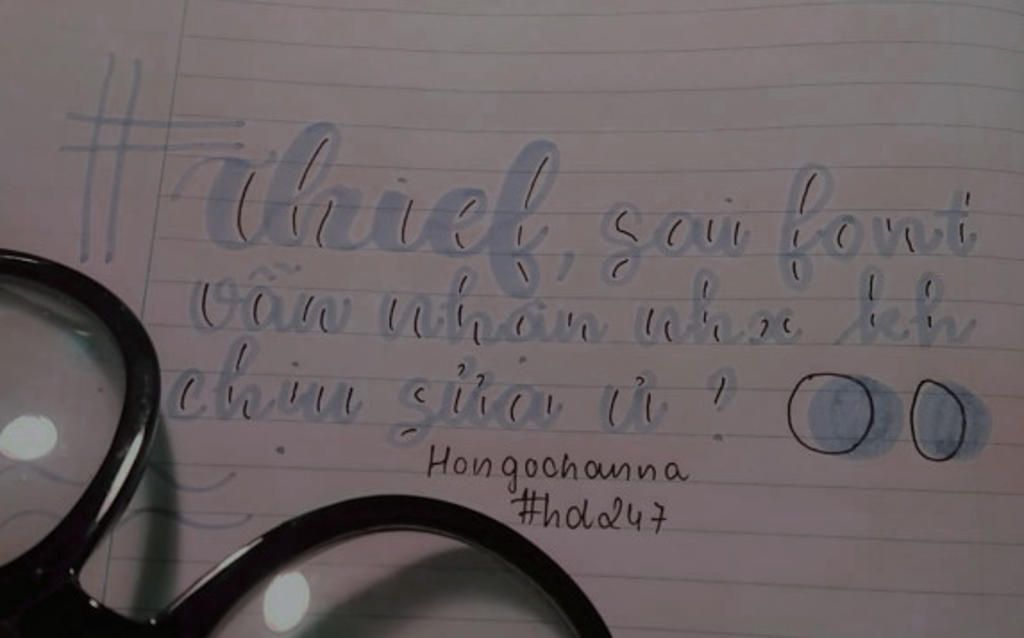 #thief, sai font
vẫn nhận nhx kh
chịu sửa ư ?
Hongochanna
#hd247